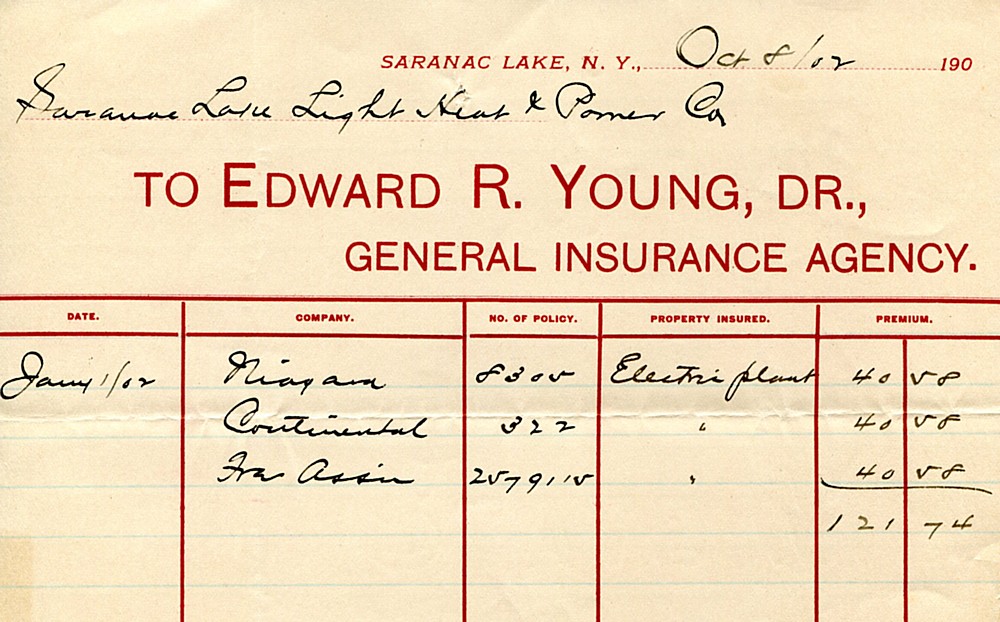 SARANAC LAKE, N. Y., Oct 8/02 190
Saranac Lake Light Heat & Power Co
TO EDWARD R. YOUNG, DR.,
GENERAL INSURANCE AGENCY.
DATE. COMPANY. NO. OF POLICY. PROPERTY INSURED. PREMIUM.
Jany 1/02 Niagara 8305 Electric plant 40 58
Continental 322 " 40 58
Assn 2579115 " 40 58
121 74